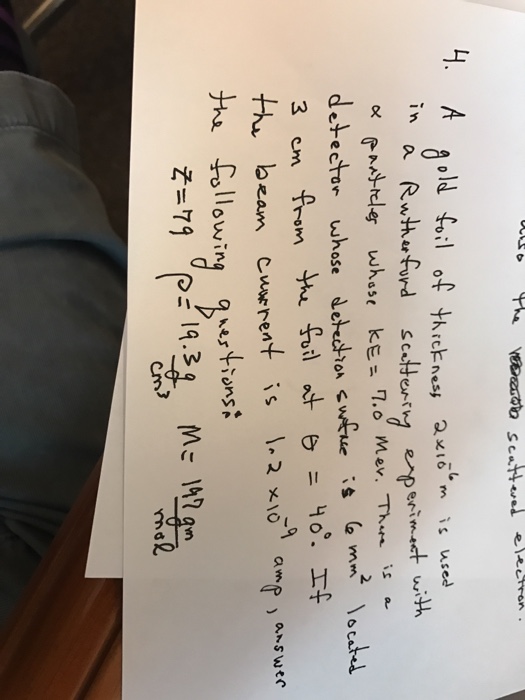 also the scattered electron.
4. A gold foil of thickness 2x10⁻⁶ m is used
in a Rutherford scattering experiment with
α particles whose KE = 7.0 Mev. There is a
detector whose detection surface is 6 mm² located
3 cm from the foil at θ = 40°. If
the beam current is 1.2 x10⁻⁹ amp, answer
the following questions:
Z=79 ρ= 19.3 g/cm³ M= 197 gm/mol